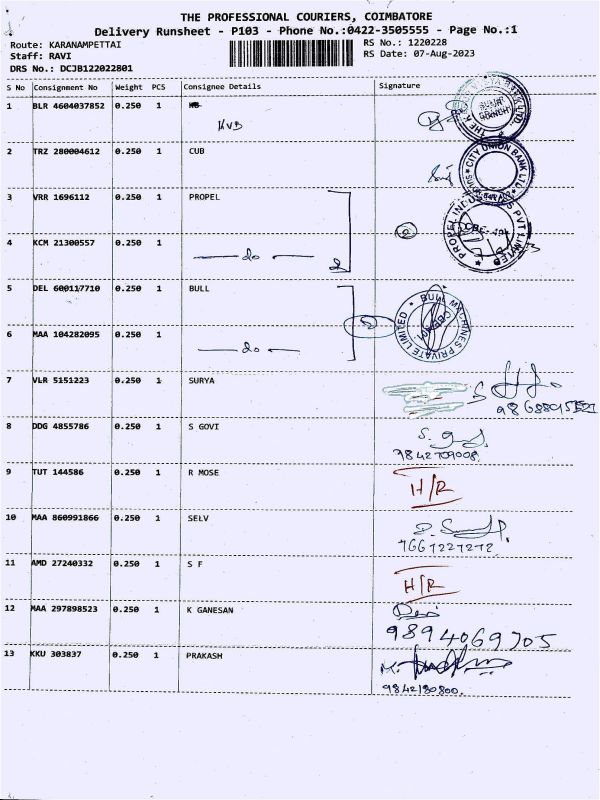 THE PROFESSIONAL COURIERS, COIMBATORE
Delivery Runsheet - P103 - Phone No.:0422-3505555 - Page No.:1
Route: KARANAMPETTAI RS No.: 1220228
Staff: RAVI RS Date: 07-Aug-2023
DRS No.: DCJB122022801
S No Consignment No Weight PCS Consignee Details Signature
1 BLR 4604037852 0.250 1
KVB
2 TRZ 280004612 0.250 1 CUB
CITY UNION BANK LTD
3 VRR 1696112 0.250 1 PROPEL
PROPEL INDUSTRIES PVT LIMITED
4 KCM 21300557 0.250 1
do 2
5 DEL 600117710 0.250 1 BULL
BULL MACHINES PRIVATE LIMITED
6 MAA 104282095 0.250 1
do
7 VLR 5151223 0.250 1 SURYA
8 DDG 4855786 0.250 1 S GOVI
9842709008.
9 TUT 144586 0.250 1 R MOSE
H/R
10 MAA 860991866 0.250 1 SELV
11 AMD 27240332 0.250 1 S F
H/R
12 MAA 297898523 0.250 1 K GANESAN
9894069705
13 KKU 303837 0.250 1 PRAKASH
9842130800.